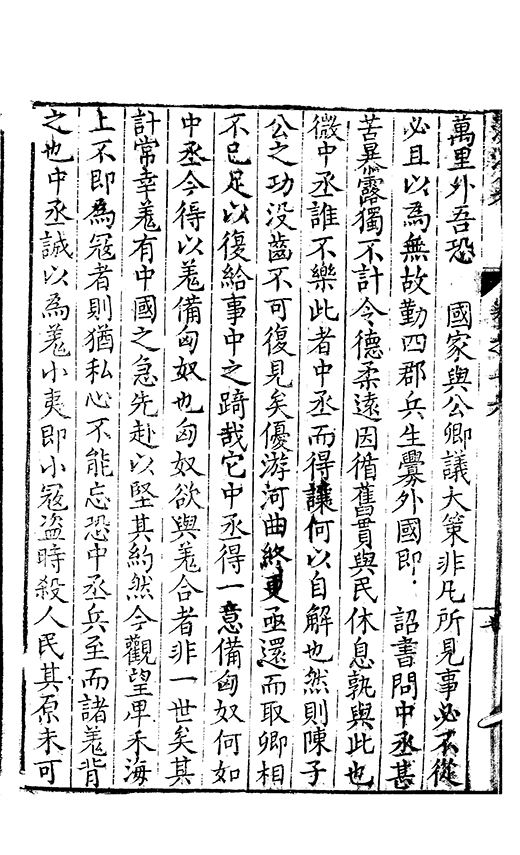 萬里外吾恐　國家與公卿議大策非凡所見事必不從
必且以為無故勤四郡兵生釁外國即　詔書問中丞甚
苦暴露獨不計令德柔遠因循舊貫與民休息孰與此也
微中丞誰不樂此者中丞而得讓何以自解也然則陳子
公之功没齒不可復見矣優游河曲終更亟還而取卿相
不已足以復給事中之踦哉它中丞得一意備匈奴何如
中丞今得以羗備匈奴也匈奴欲與羗合者非一世矣其
計常幸羗有中國之急先赴以堅其約然今觀望卑禾海
上不即為冦者則猶私心不能忘恐中丞兵至而諸羗背
之也中丞誠以為羗小夷即小冦盗時殺人民其原未可